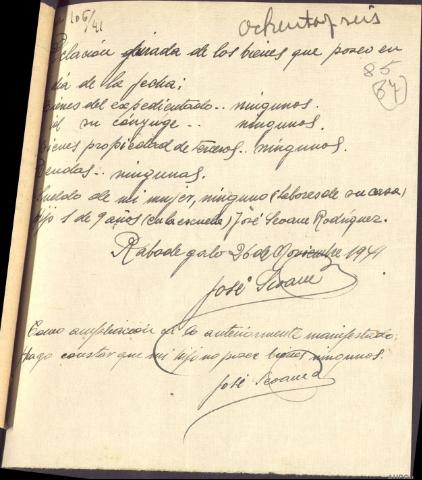 106/41
ochentaiseis
85
Relación jurada de los bienes que poseo en
día de la fecha;
Bienes del expedientado.. ningunos.
Id. su cónyuge.. ningunos.
Bienes propiedad de tercros.. ningunos.
Deudas.. ningunas.
Sueldo de mi mujer, ninguno (labores de su casa)
Hijo 1 de 9 años (en la escuela) José Seoane Rodriguez.
Rabodegalo 26 de Noviembre 1941
José Seoane
Como ampliación de lo anteriormente manifestado,
hago constar que mi hijo no posee bienes ningunos.
José Seoane